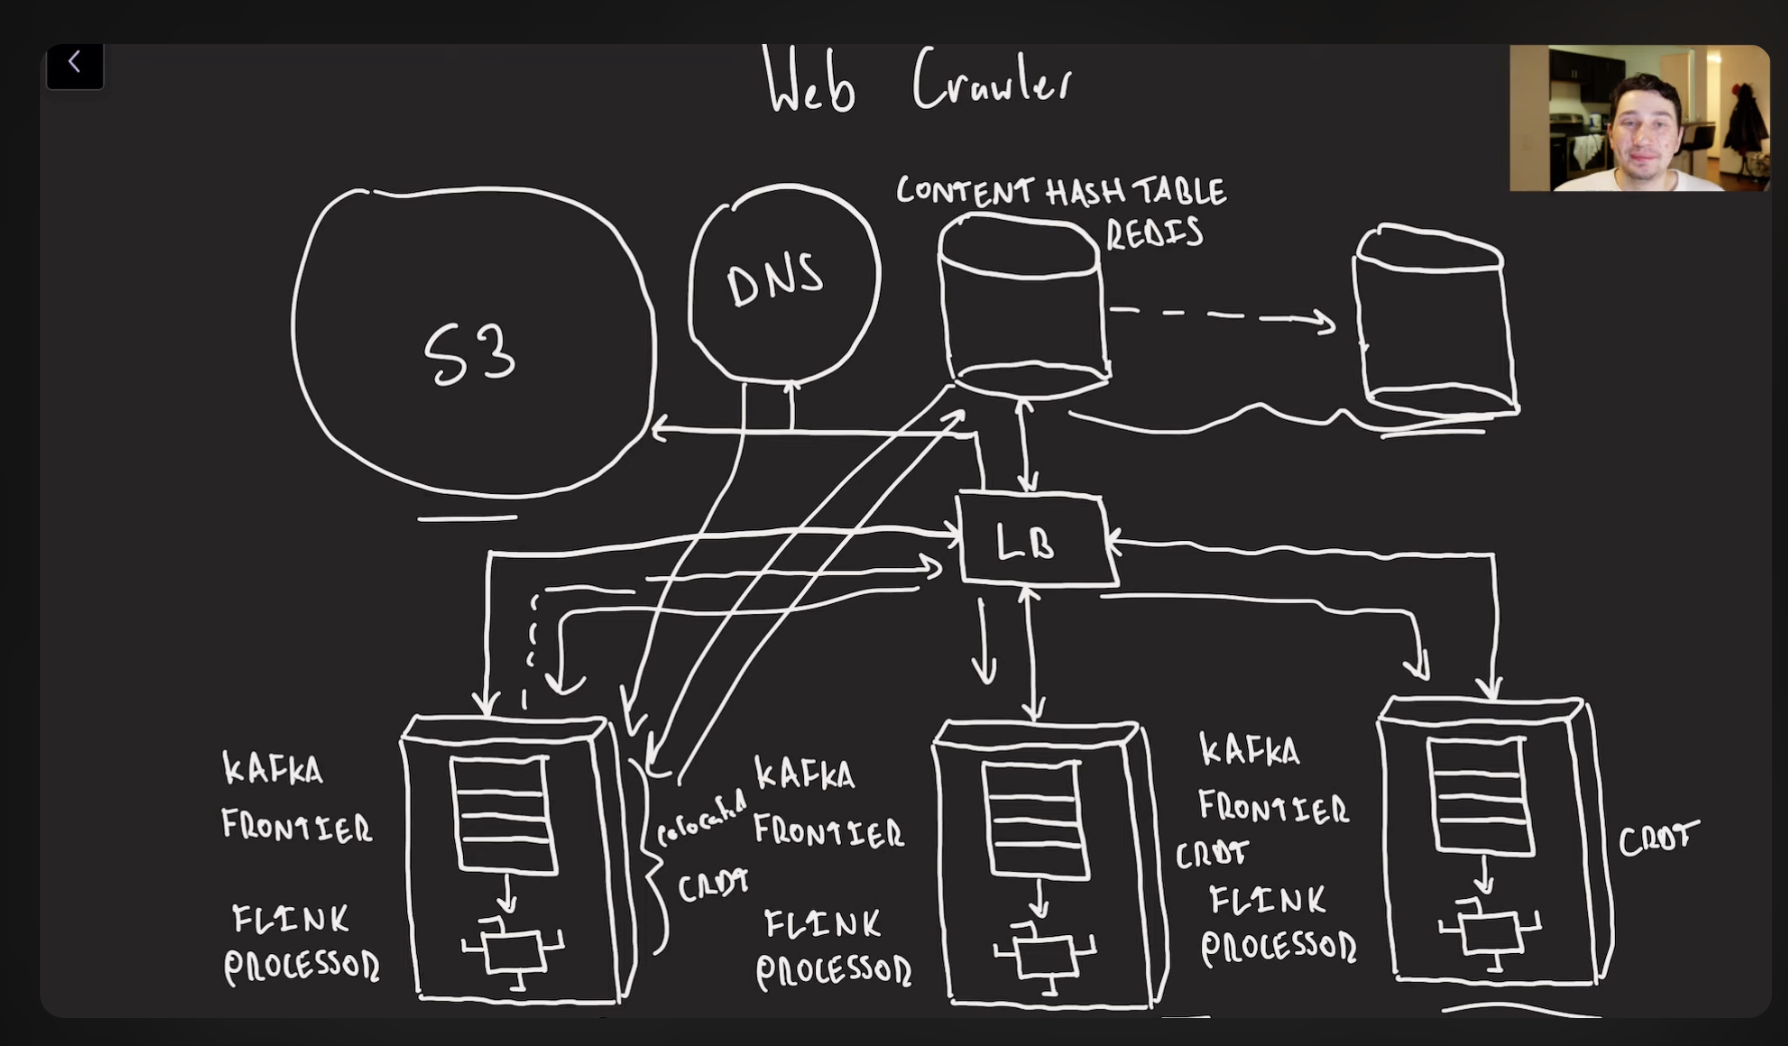 Web Crawler
CONTENT HASH TABLE
REDIS
DNS
S3
LB
KAFKA
FRONTIER
FLINK
PROCESSOR
colocated
CRDT
KAFKA
FRONTIER
FLINK
PROCESSOR
CRDT
KAFKA
FRONTIER
FLINK
PROCESSOR
CRDT